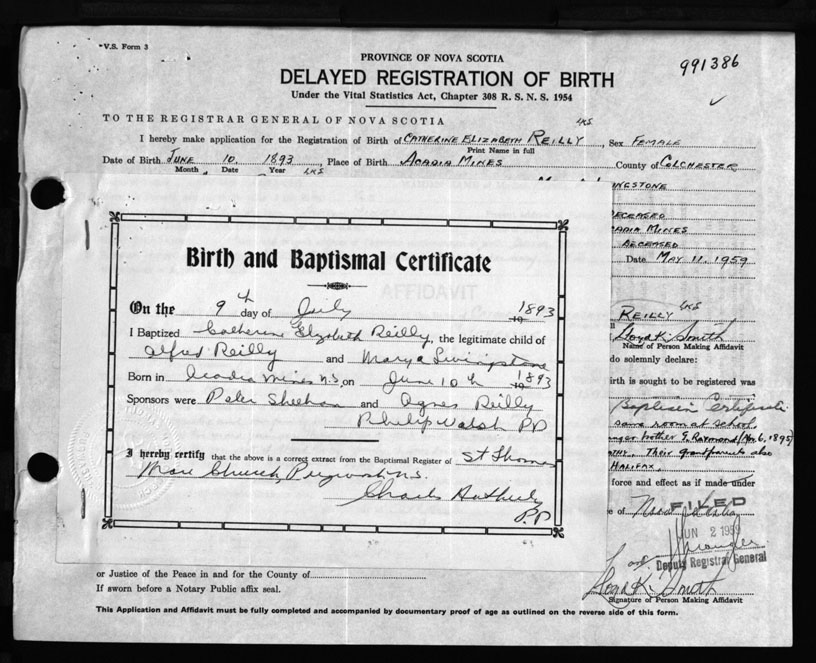 V.S. Form 3
PROVINCE OF NOVA SCOTIA
991386
DELAYED REGISTRATION OF BIRTH
Under the Vital Statistics Act, Chapter 308 R. S. N. S. 1954
LKS
TO THE REGISTRAR GENERAL OF NOVA SCOTIA
I hereby make application for the Registration of Birth of CATHERINE ELIZABETH REILLY, Sex FEMALE
Print Name in full
Date of Birth JUNE 10, 1893, Place of Birth ACADIA MINES County of COLCHESTER
Month Date Year LKS
NGSTONE
ECEASED
CADIA MINES
DECEASED
Date MAY 11, 1959
REILLY LKS
Lloyd K. Smith
Name of Person Making Affidavit
do solemnly declare:
irth is sought to be registered was
Baptism Certificate
same room at school,
nger brother G. Raymond (Nov. 6, 1895)
Their grandparents also
HALIFAX,
force and effect as if made under
e of Nova Scotia
FILED
JUN 2 1959
Deputy Registrar General
Lloyd K. Smith
Signature of Person Making Affidavit
Birth and Baptismal Certificate
AFFIDAVIT
On the 9th day of July 1893
I Baptized Catherine Elizabeth Reilly, the legitimate child of
Alfred Reilly and Mary A Livingstone
Born in Acadia Mines N.S. on June 10th 1893
Sponsors were Peter Sheehan and Agnes Reilly
Philip Walsh PP
I hereby certify that the above is a correct extract from the Baptismal Register of St Thomas
More Church N.S.
Charles
P.P.
or Justice of the Peace in and for the County of
If sworn before a Notary Public affix seal.
This Application and Affidavit must be fully completed and accompanied by documentary proof of age as outlined on the reverse side of this form.